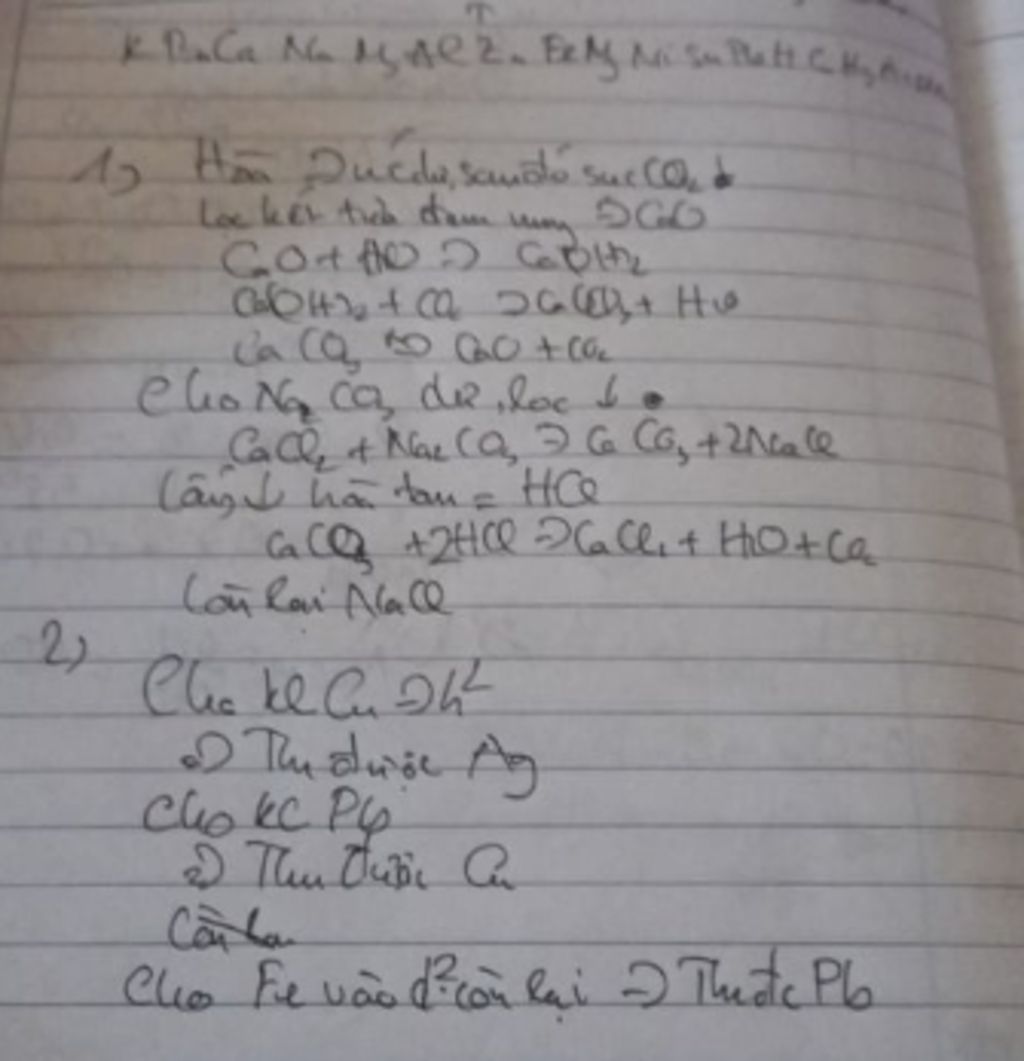 K Ba Ca Na Mg Al Zn Fe Ni Sn Pb H C Hg
1) Hòa nước dư, sau đó sục CO2 ↓
Lọc kết tích đem nung => CaO
CaO + H2O => Ca(OH)2
Ca(OH)2 + CO2 => CaCO3 + H2O
CaCO3 to CaO + CO2
Cho Na2CO3 dư, lọc ↓
CaCl2 + Na2CO3 => CaCO3 + 2NaCl
Lấy ↓ hòa tan = HCl
CaCO3 + 2HCl => CaCl2 + H2O + CO2
Còn lại NaCl
2)
Cho kl Cu => h2
=> Thu được Ag
Cho Pb
=> Thu được Cu
Còn la
Cho Fe vào d2 còn lại => Thu đc Pb